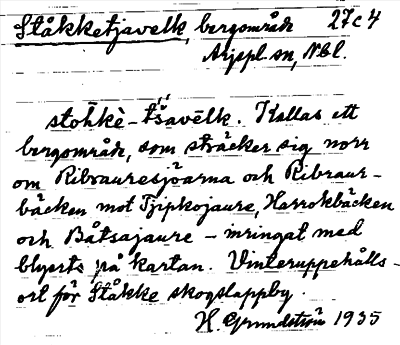 Ståkketjavelk, bergområde 27c4
Arjepl. sn, Nbl.
stohkè - tšavēlk. Kallas ett
bergområde, som sträcker sig norr
om Ribrauresjöarna och Ribraur-
bäcken mot Tjirpkojaure, Harrokbäcken
och Båtsajaure - inringat med
blyerts på kartan. Vinteruppehålls-
ort för Ståkke skogslappby.
H. Grundström 1935